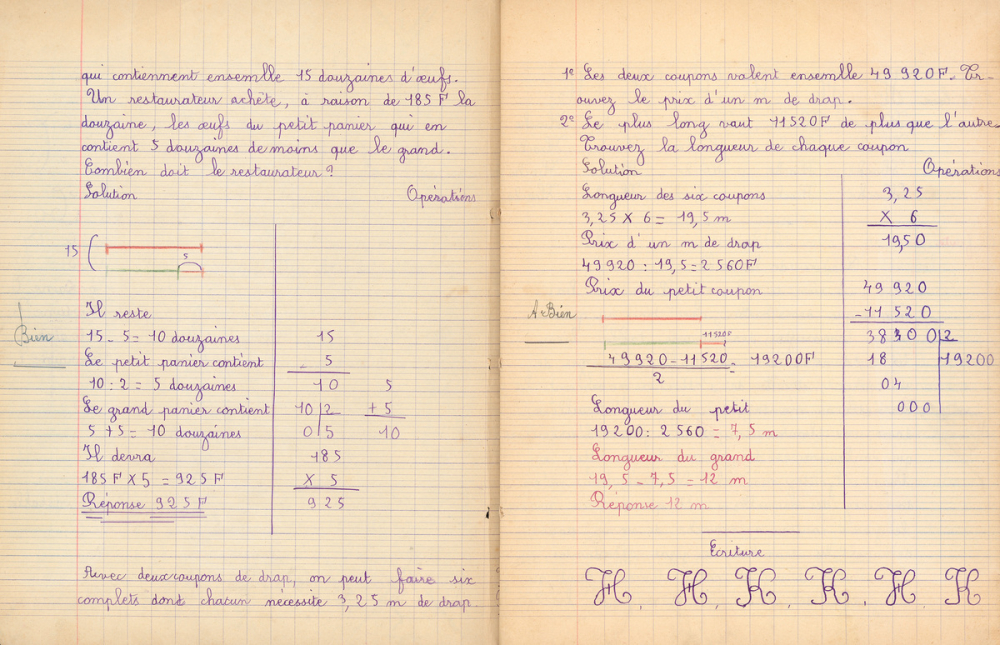 qui contiennent ensemble 15 douzaines d'œufs.
Un restaurateur achète, à raison de 185 F la
douzaine, les œufs du petit panier qui en
contient 5 douzaines de moins que le grand.
Combien doit le restaurateur ?
Solution Opérations
15
5
Bien
Il reste
15 - 5 = 10 douzaines 15
Le petit panier contient - 5
10 : 2 = 5 douzaines 10 5
Le grand panier contient 10 2 + 5
5 + 5 = 10 douzaines 0 5 10
Il devra 185
185 F X 5 = 925 F X 5
Réponse 925 F 925
Avec deux coupons de drap, on peut faire six
complets dont chacun nécessite 3,25 m de drap
1° Les deux coupons valent ensemble 49 920 F. Tr-
ouvez le prix d'un m de drap.
2° Le plus long vaut 11520 F de plus que l'autre
Trouvez la longueur de chaque coupon
Solution Opérations
Longueur des six coupons 3,25
3,25 X 6 = 19,5 m X 6
Prix d'un m de drap 19,50
49920 : 19,5 = 2 560 F
Prix du petit coupon 49 920
A. Bien
- 11 520
11520F
38400 2
49920 - 11520 = 19200 F 18 19200
2
04
000
Longueur du petit
19200 : 2 560 = 7,5 m
Longueur du grand
19,5 - 7,5 = 12 m
Réponse 12 m
Ecriture
H. H. K. K. H. K